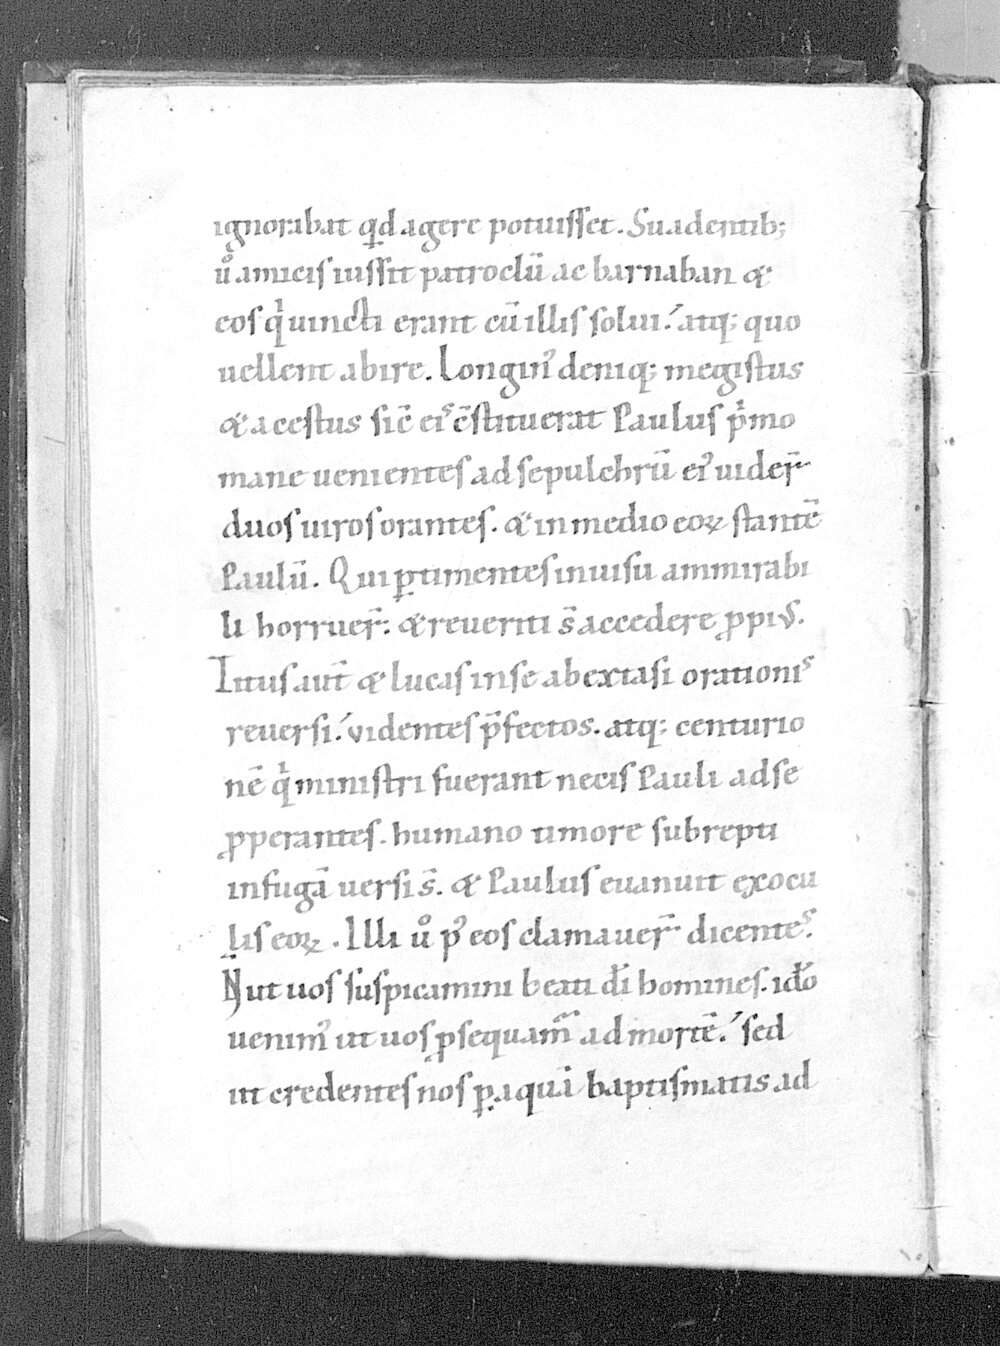 ignorabat qd agere potuisset. Suadentib;
uͦ amicis iussit patroclū ac barnaban &
eos qͥ uincti erant cū illis solui. atq; quo
uellent abire. Longinꝰ deniq; megistus
& acestus sic̄ eis c̄stituerat Paulus pͥmo
mane uenientes ad sepulchrū eiꝰ uider̄
duos uiros orantes. & in medio eoꝝ stantē
Paulū. Qui ꝑtimentes in uisu ammirabi
li horruer̄. & reueriti s̄ accedere ꝓpius.
Titus aut̄ & lucas in se ab extasi orationis
reuersi. videntes p̄fectos. atq; centurio
nē qͥ ministri fuerant necis Pauli ad se
ꝓperantes. humano timore subrepti
in fugā uersi s̄. & Paulus euanuit ex ocu
lis eoꝝ. Illi uͦ pꝰ eos clamauer̄ dicentes.
Nł ut uos suspicamini beati dī homines. iđo
uenimꝰ ut uos ꝑsequamͬ ad mortē. sed
ut credentes nos ꝑ aquā baptismatis ad